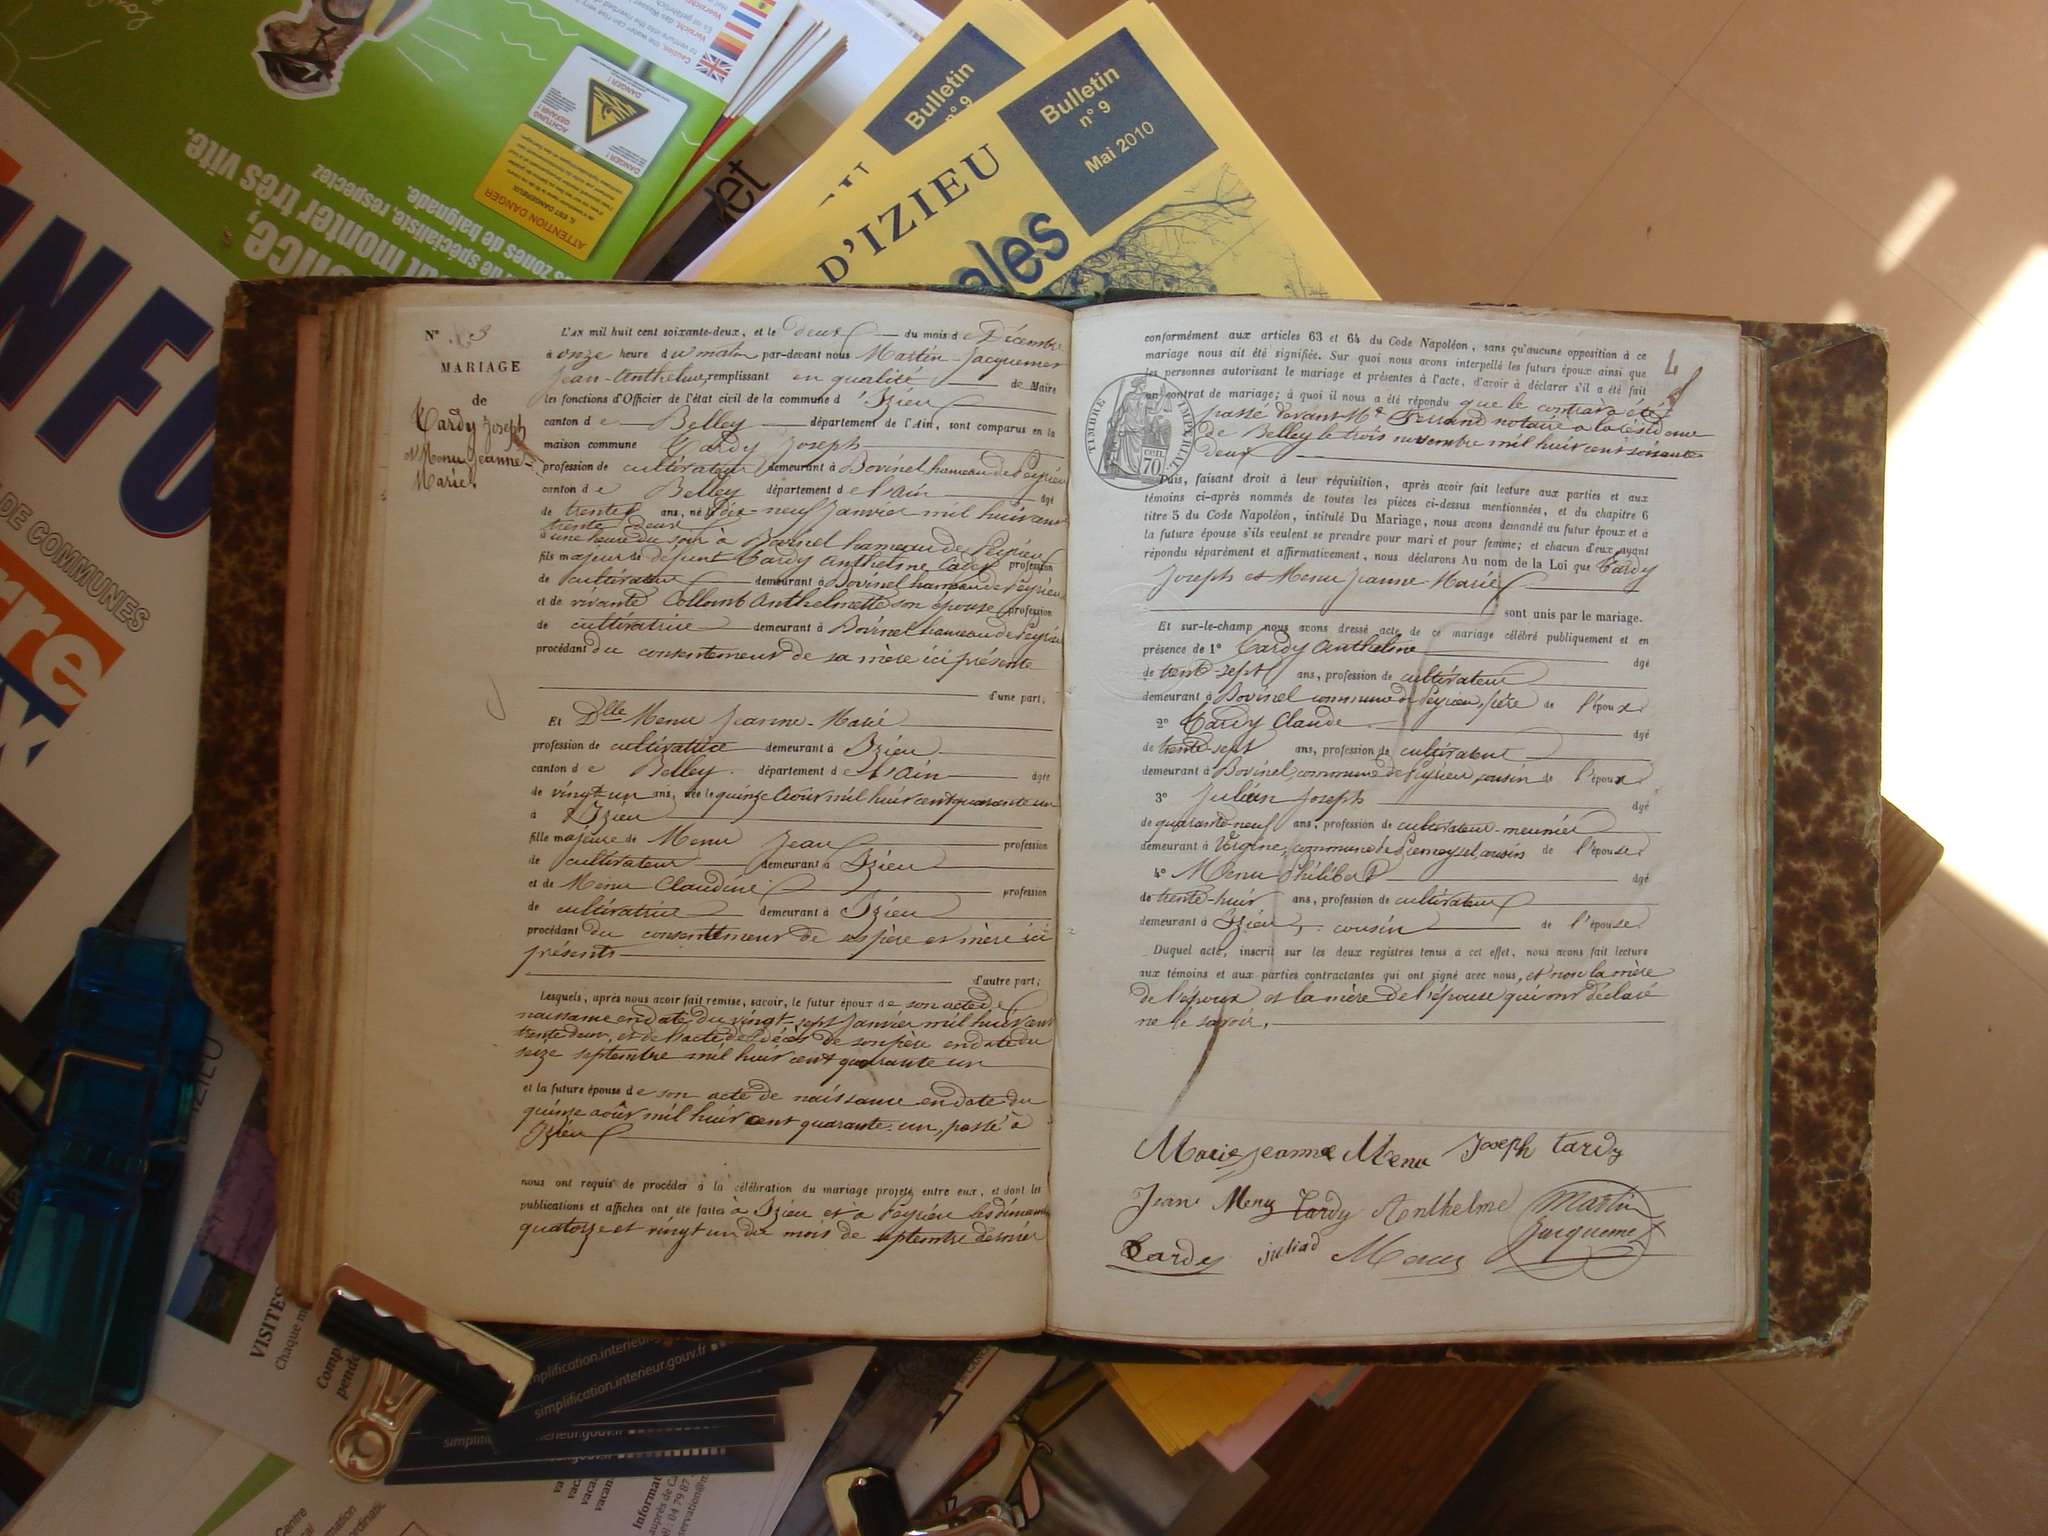 Bulletin
n° 9
Bulletin
n° 9
Mai 2010
D'IZIEU
ales
INFO
DE COMMUNES
rre
ATTENTION DANGER
ACHTUNG
GEFAHR !
DANGER !
ut monter très vite.
de spécialiste, respectez
s zones de baignade.
N° 3
MARIAGE
de
Tardy Joseph
et Menu Jeanne-
Marie.
L'AN mil huit cent soixante-deux, et le deux du mois de Décembre
à onze heure du matin par-devant nous Martin-Jacquemet
Jean-Anthelme, remplissant en qualité de Maire
les fonctions d'Officier de l'état civil de la commune d'Izieu
canton de Belley département de l'Ain, sont comparus en la
maison commune Tardy Joseph
profession de cultivateur demeurant à Bovinel hameau de Peyrieu
canton de Belley département de l'ain âgé
de trente ans, né le dix-neuf Janvier mil huit cent
trente deux
à une heure du soir à Bovinel hameau de Peyrieu
fils majeur de défunt Tardy Anthelme Cadet profession
de cultivateur demeurant à Bovinel hameau de Peyrieu
et de vivante Collomb Anthelmette son épouse profession
de cultivatrice demeurant à Bovinel hameau de Peyrieu
procédant du consentement de sa mère ici présente
d'une part;
Et Dlle Menu Jeanne-Marie
profession de cultivatrice demeurant à Izieu
canton de Belley département de l'ain âgée
de vingt-un ans, née le quinze Août mil huit cent quarante un
à Izieu
fille majeure de Menu Jean profession
de cultivateur demeurant à Izieu
et de Menu Claudine profession
de cultivatrice demeurant à Izieu
procédant du consentement de ses père et mère ici
présents
d'autre part;
Lesquels, après nous avoir fait remise, savoir, le futur époux de son acte de
naissance en date du vingt-sept Janvier mil huit cent
trente deux, et de l'acte de décès de son père en date du
seize septembre mil huit cent quarante un
et la future épouse de son acte de naissance en date du
quinze août mil huit cent quarante-un, passé à
Izieu
nous ont requis de procéder à la célébration du mariage projeté entre eux, et dont les
publications et affiches ont été faites à Izieu et à Peyrieu les dimanches
quatorze et vingt un du mois de septembre dernier
conformément aux articles 63 et 64 du Code Napoléon, sans qu'aucune opposition à ce
mariage nous ait été signifiée. Sur quoi nous avons interpellé les futurs époux ainsi que
les personnes autorisant le mariage et présentes à l'acte, d'avoir à déclarer s'il a été fait
un contrat de mariage; à quoi il nous a été répondu que le contrat a été
passé devant Mt Ferrand notaire a la résidence
de Belley le trois novembre mil huit cent soixante
deux
TIMBRE IMPÉRIAL
70 cen.
Puis, faisant droit à leur réquisition, après avoir fait lecture aux parties et aux
témoins ci-après nommés de toutes les pièces ci-dessus mentionnées, et du chapitre 6
titre 5 du Code Napoléon, intitulé Du Mariage, nous avons demandé au futur époux et à
la future épouse s'ils veulent se prendre pour mari et pour femme; et chacun d'eux ayant
répondu séparément et affirmativement, nous déclarons Au nom de la Loi que Tardy
Joseph et Menu Jeanne-Marie
sont unis par le mariage.
Et sur-le-champ nous avons dressé acte de ce mariage célébré publiquement et en
présence de 1° Tardy Anthelme âgé
de trente-sept ans, profession de cultivateur
demeurant à Bovinel commune de Peyrieu, frère de l'époux.
2° Tardy Claude âgé
de trente-sept ans, profession de cultivateur
demeurant à Bovinel, commune de Peyrieu, cousin de l'époux.
3° Julian Joseph âgé
de quarante-neuf ans, profession de cultivateur-meunier
demeurant à commune de cousin de l'épouse.
4° Menu Philibert âgé
de trente-huit ans, profession de cultivateur
demeurant à Izieu, cousin de l'épouse
Duquel acte, inscrit sur les deux registres tenus à cet effet, nous avons fait lecture
aux témoins et aux parties contractantes qui ont signé avec nous, et non la mère
de l'époux et la mère de l'épouse qui ont déclaré
ne le savoir.
Marie Jeanne Menu Joseph tardy
Jean Menu Tardy Anthelme Martin
Jacquemet
Tardy juliad Menu
VISITES
simplification.interieur.gouv.fr
simplification.interieur.gouv.fr